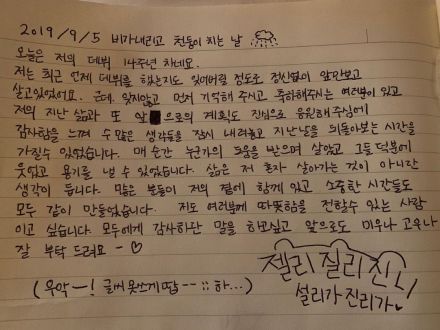 2019/9/5 비가내리고 천둥이 치는 날
오늘은 저의 데뷔 14주년 차네요.
저는 최근 언제 데뷔를 했는지도 잊어버릴 정도로 정신없이 앞만보고
살고있었어요. 근데 잊지않고 먼저 기억해 주시고 축하해주시는 여러분이 있고
저의 지난 삶과 또 앞으로의 계획도 진심으로 응원해주심에
감사함을 느껴 수 많은 생각들을 잠시 내려놓고 지난날을 되돌아보는 시간을
가질수 있었습니다. 매 순간 누군가의 도움을 받으며 살았고 그들 덕분에
웃었고 용기를 낼 수 있었습니다. 삶은 저 혼자 살아가는 것이 아니란
생각이 듭니다. 많은 분들이 저의 곁에 함께 있고 소중한 시간들도
모두 같이 만들었습니다. 저도 여러분께 따뜻함을 전할수 있는 사람
이고 싶습니다. 모두에게 감사하단 말을 하고싶고 앞으로도 미우나 고우나
잘 부탁 드려요 - ♡
젤리 질리 진니
설리가 진리가
(우악-! 글씨 못쓰게땁-- :: 하...)